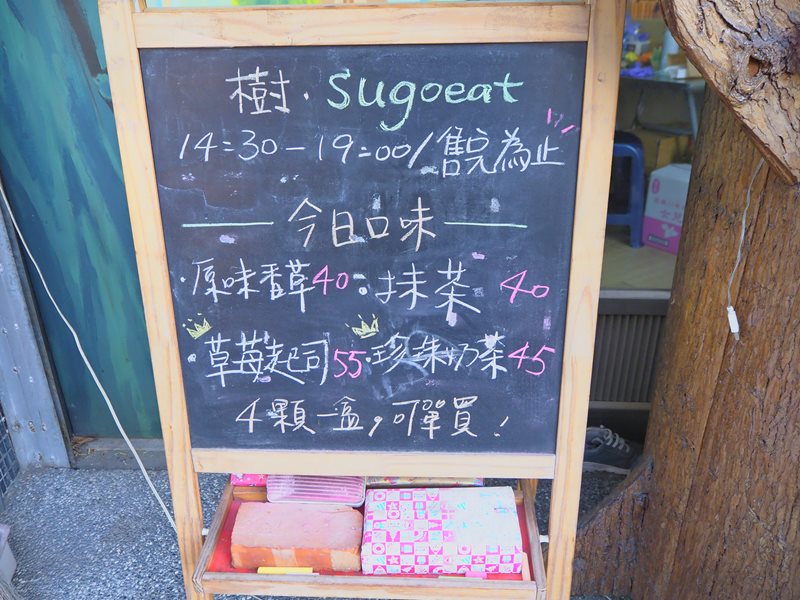 樹．sugoeat
14:30-19:00/售完為止
今日口味
·原味香草40 ·抹茶 40
·草莓起司55 ·珍珠奶茶45
4顆一盒，可單買！